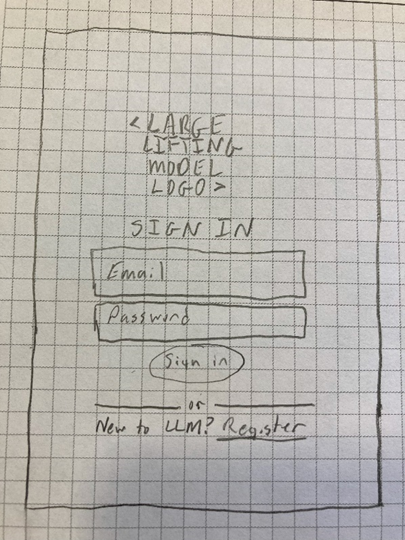 <LARGE
LIFTING
MODEL
LOGO>
SIGN IN
Email
Password
Sign in
or
New to LLM? Register